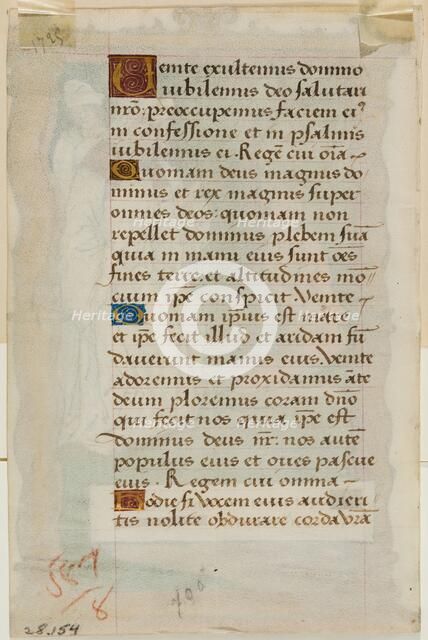 1725
Venite exultemus domino
iubilemus deo salutari
nr̄o: preoccupemus faciem eiꝰ
in confessione et in psalmis
iubilemus ei. Regē cui oīa
Quoniam deus magnus do
minus et rex magnus super
omnes deos: quoniam non
repellet dominus plebem suā
quia in manu eius sunt oēs
fines terre. et altitudines mō
cium ip̄e conspicit Venite
Quoniam ip̄ius est mare
et ip̄e fecit illud et aridam fū
dauerunt manus eius. Venite
adoremus et procidamus āte
deum ploremus coram dn̄o
qui fecit nos quia ip̄e est
dominus deus nr̄: nos autē
populus eius et oues pascue
eius. Regem cui omnia
Hodie si vocem eius audieri
tis nolite obdurare corda vr̄a
Heritage Heritage
28.154